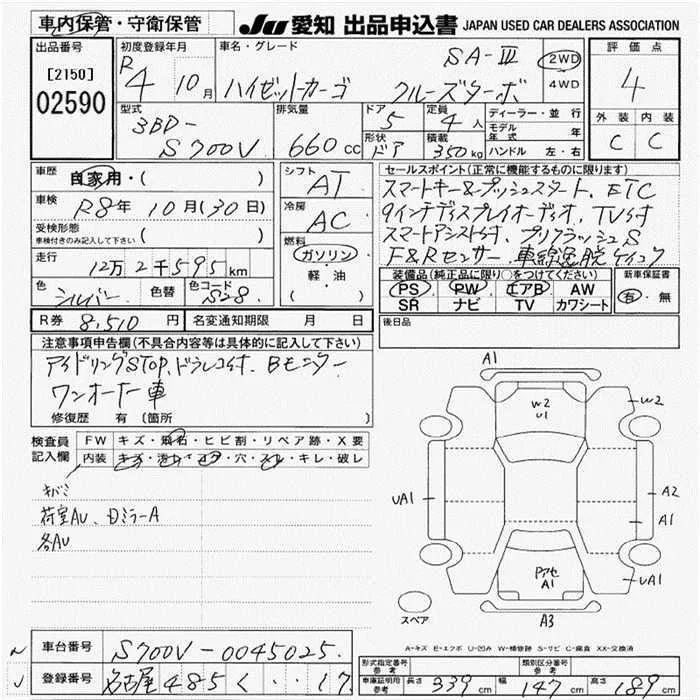 車内保管・守衛保管
JU 愛知 出品申込書 JAPAN USED CAR DEALERS ASSOCIATION
出品番号
[2150]
02590
初度登録年月
R4 10月
車名・グレード
ハイゼットカーゴ クルーズターボ SA-Ⅲ
2WD
4WD
評価点
4
外装 内装
C C
型式
3BD-S700V
排気量
660cc
ドア
5
形状
ドア
定員
4人
積載
350kg
ディーラー・並行
モデル年式 年
ハンドル 左・右
車歴
自家用・( )
車検
R8年10月(30日)
受検形態
車検付きのみ記入して下さい ( )
走行
12万2千595km
色 シルバー 色替 色コード S28
シフト
AT
冷房
AC
燃料
ガソリン
軽・油
( )
セールスポイント(正常に機能するものに限ります)
スマートキー&プッシュスタート、ETC
9インチディスプレイオーディオ、TV付
スマートアシスト付、プリクラッシュS
F&Rセンサー、車線逸脱
装備品(純正品に限り○をつけてください)
PS PW エアB AW
SR ナビ TV カワシート
新車保証書
有・無
R券 8,510円 名変通知期限 月 日
後日品
注意事項申告欄(不具合内容等は具体的に記入して下さい)
アイドリングSTOP、ドラレコ付、Bモニター
ワンオーナー車
修復歴 有(箇所 )
検査員記入欄
FW キズ・飛石・ヒビ割・リペア跡・X要
内装 キズ・汚れ・コゲ・穴・スレ・キレ・破レ
キバミ
荷室AU、Dミラー A
各AU
A1
W2
U1
W2
UA1
A2
A1
アアセ
A1
UA1
スペア
A3
A-キズ E-エクボ U-凹み W-補修跡 S-サビ C-腐食 XX-交換済
車台番号 S700V-0045025
登録番号 名古屋 485 く ・・17
形式指定番号 参考
類別区分番号 参考
車庫証明用 参考 長さ 339cm 幅 147cm 高さ 189cm